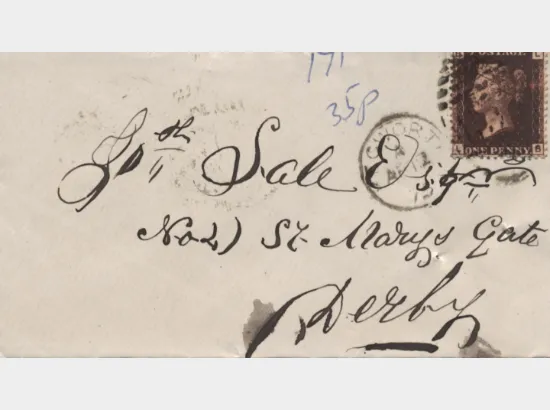 171
35p
POSTAGE
ONE PENNY
Jos'h Sale Esqr
No 21 St. Marys Gate
Derby